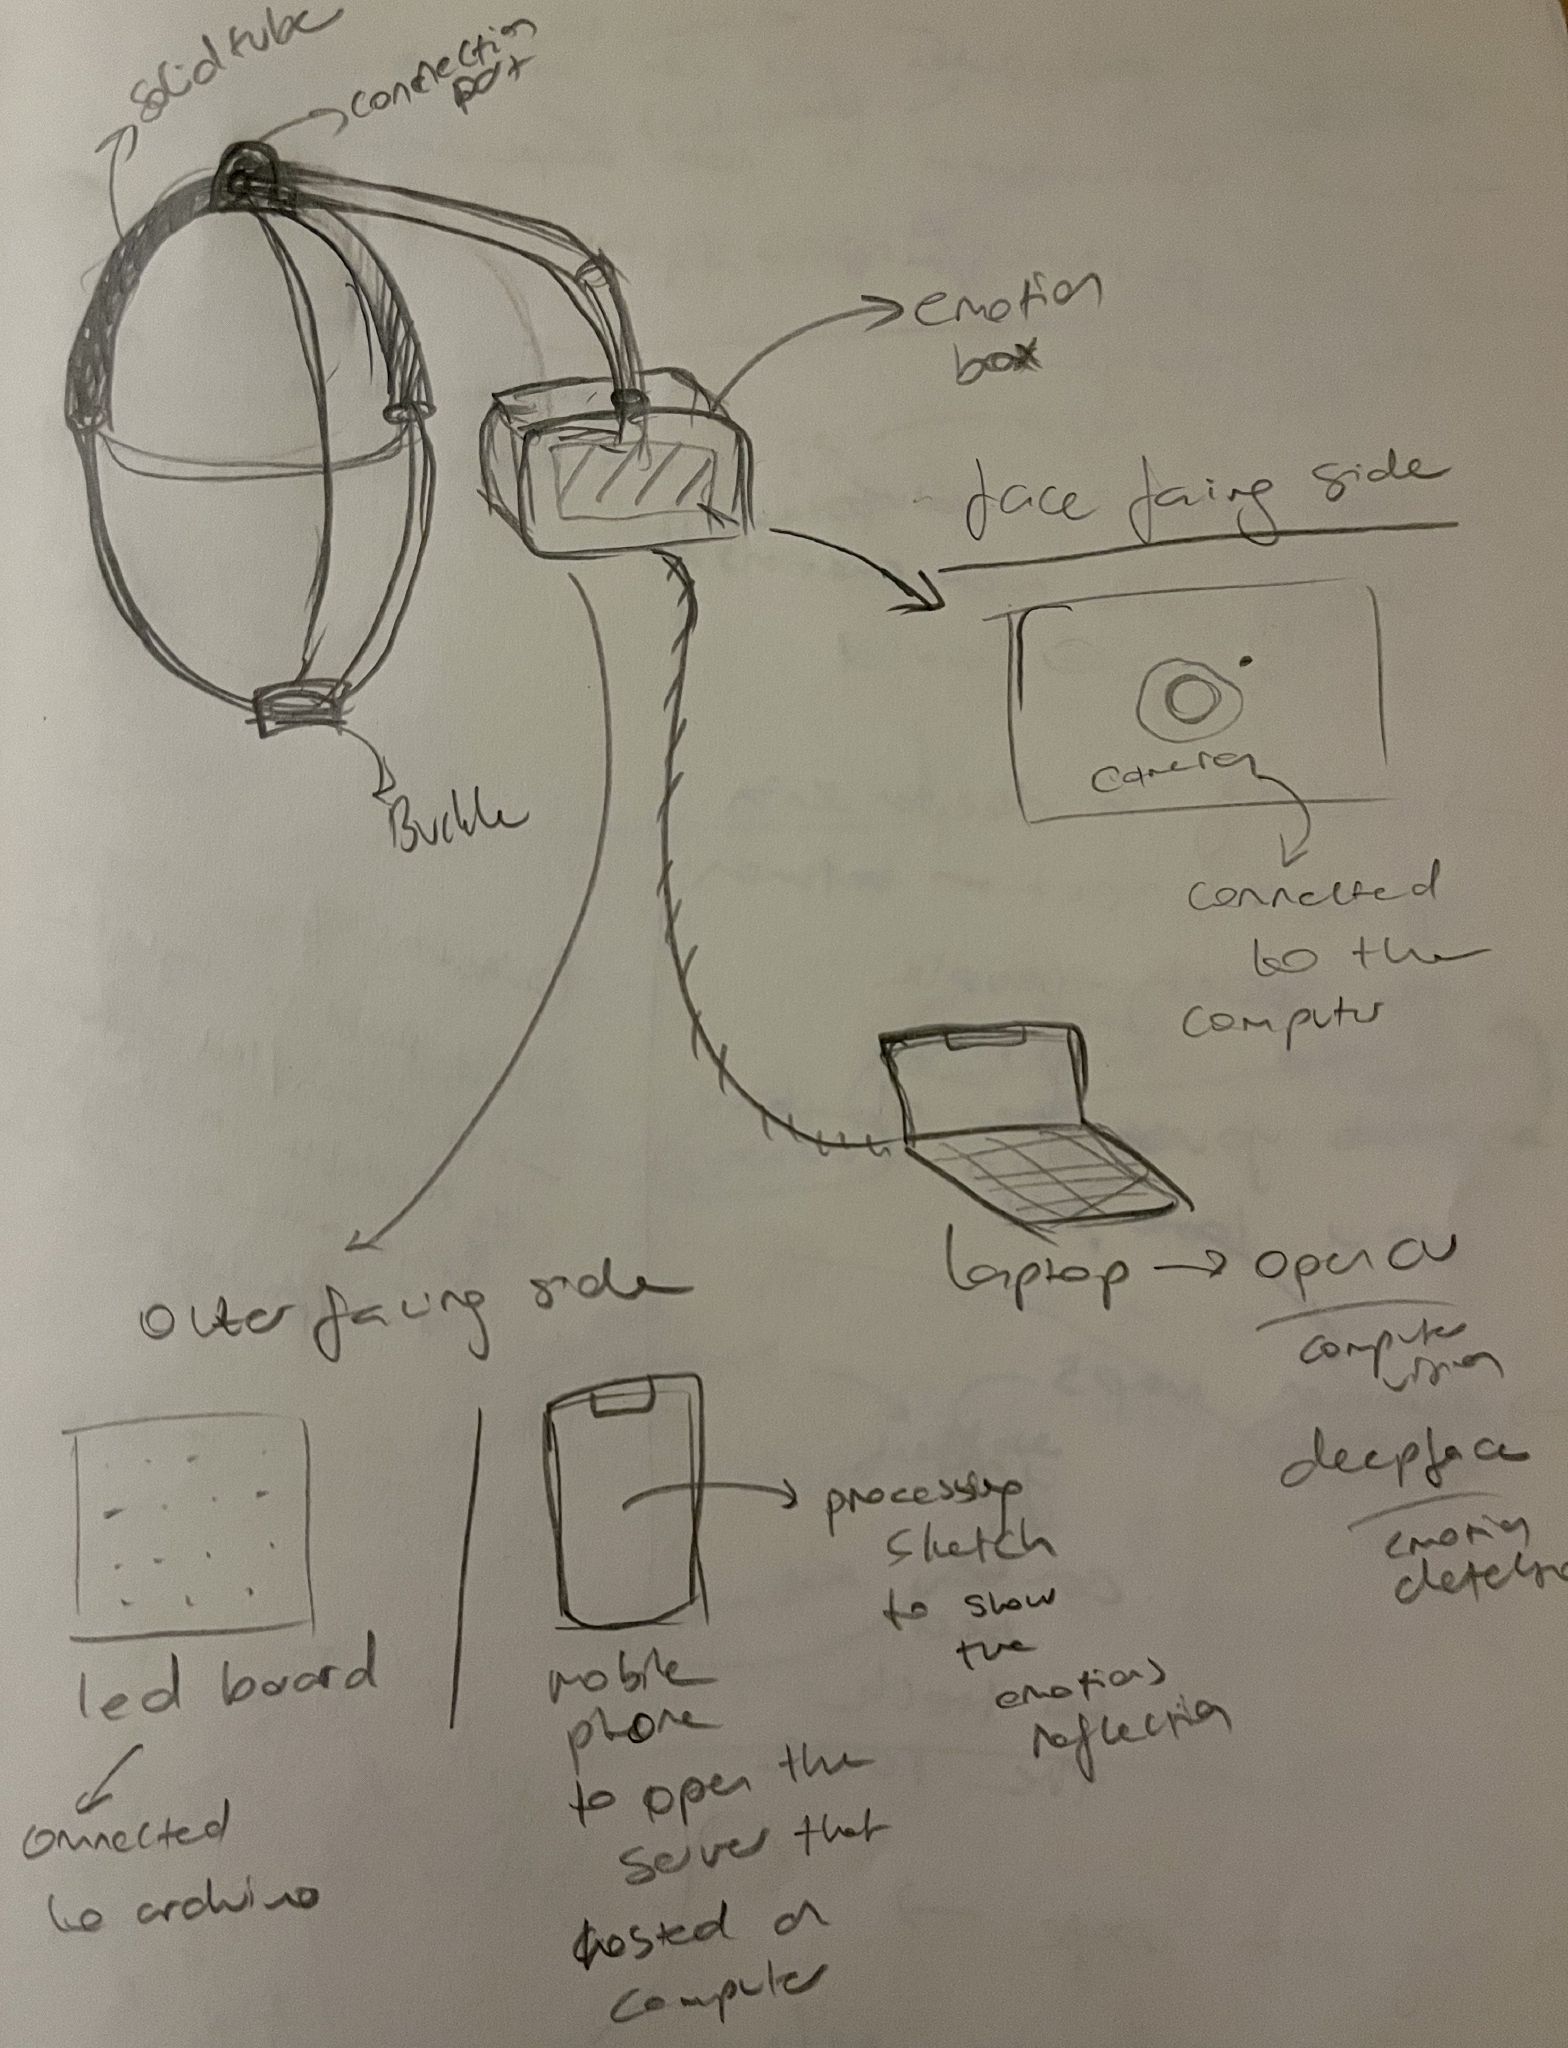 solid tube
connection
part
emotion
box
face facing side
camera
connected
to the
computer
Buckle
laptop → open cv
computer
vision
deepface
emotion
detectio
outer facing side
led board
onnected
to arduino
mobile
phone
to open the
server that
hosted on
computer
processing
sketch
to show
the
emotions
reflection